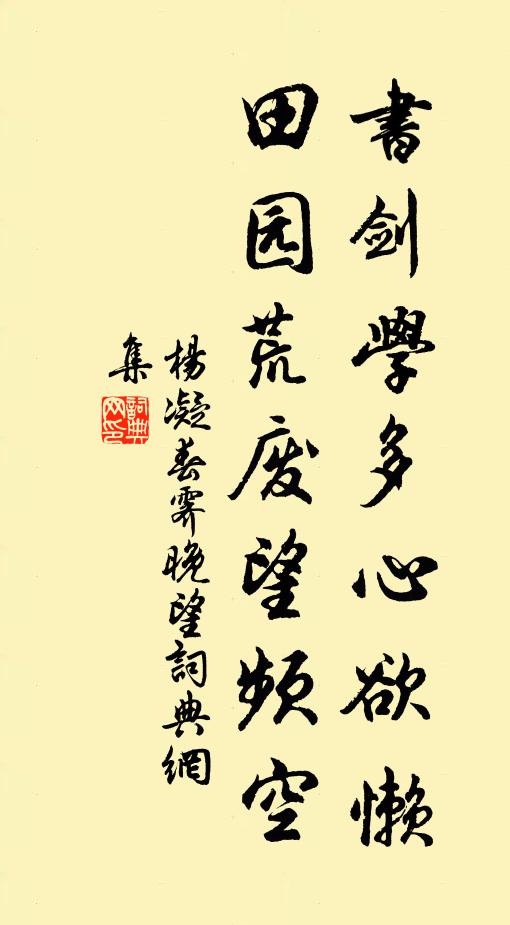 書劍學多心欲懶
田园荒废望頻空
楊凝春霽晚望詞典網
集
詞典
网印